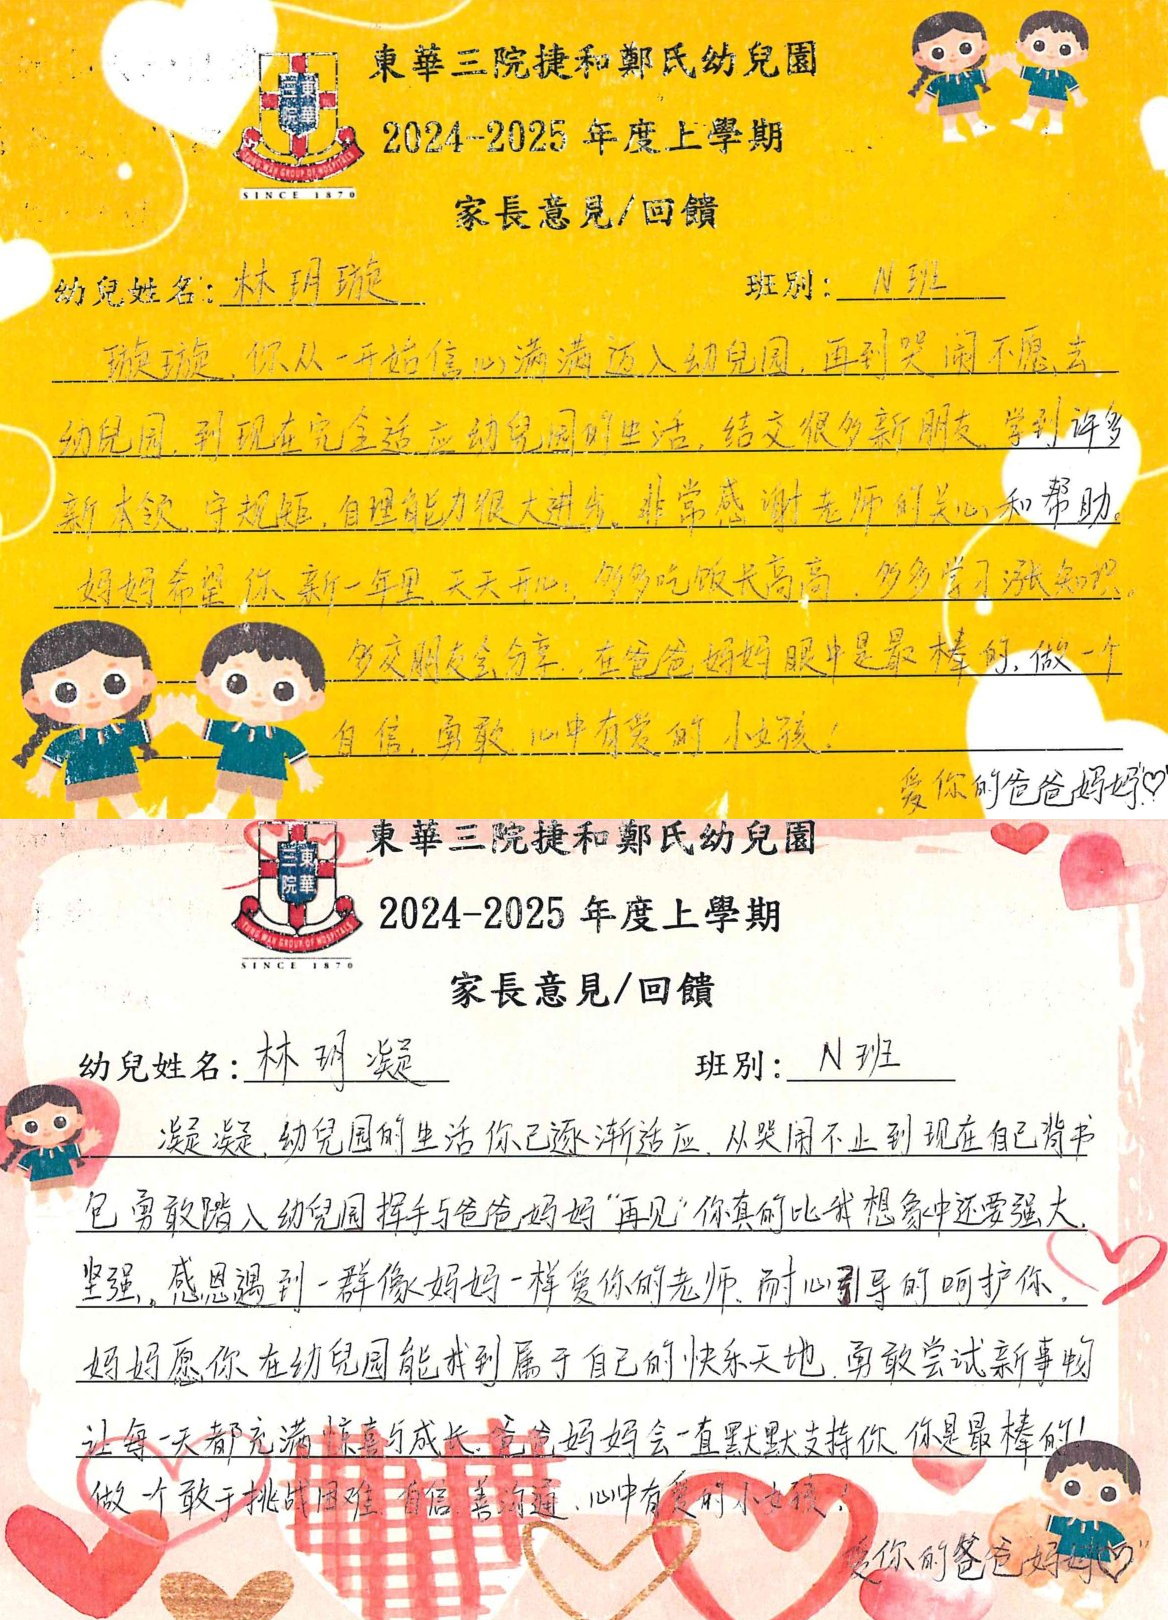 東華三院捷和鄭氏幼兒園
東華
三院
TUNG WAH GROUP OF HOSPITALS
SINCE 1870
2024-2025 年度上學期
家長意見/回饋
幼兒姓名：林玥璇 班別：N班
璇璇，你从一开始信心满满迈入幼兒园，再到哭闹不愿去
幼兒园，到现在完全适应幼兒园的生活，结交很多新朋友，学到许多
新本领，守规矩，自理能力很大进步。非常感谢老师的关心和帮助。
妈妈希望你新一年里，天天开心，多多吃饭长高高，多多学习涨知识。
多交朋友会分享，在爸爸妈妈眼中是最棒的，做一个
自信，勇敢，心中有爱的小女孩！
爱你的爸爸妈妈"♡"
東華三院捷和鄭氏幼兒園
東華
三院
TUNG WAH GROUP OF HOSPITALS
SINCE 1870
2024-2025 年度上學期
家長意見/回饋
幼兒姓名：林玥凝 班別：N班
凝凝，幼兒园的生活你已逐渐适应，从哭闹不止到现在自己背书
包勇敢踏入幼兒园挥手与爸爸妈妈"再见"你真的比我想象中还要强大，
坚强。感恩遇到一群像妈妈一样爱你的老师，耐心引导的呵护你。
妈妈愿你在幼兒园能找到属于自己的快乐天地，勇敢尝试新事物
让每一天都充满惊喜与成长。爸爸妈妈会一直默默支持你，你是最棒的！
做一个敢于挑战困难，自信，善沟通，心中有爱的小女孩！
爱你的爸爸妈妈"♡"